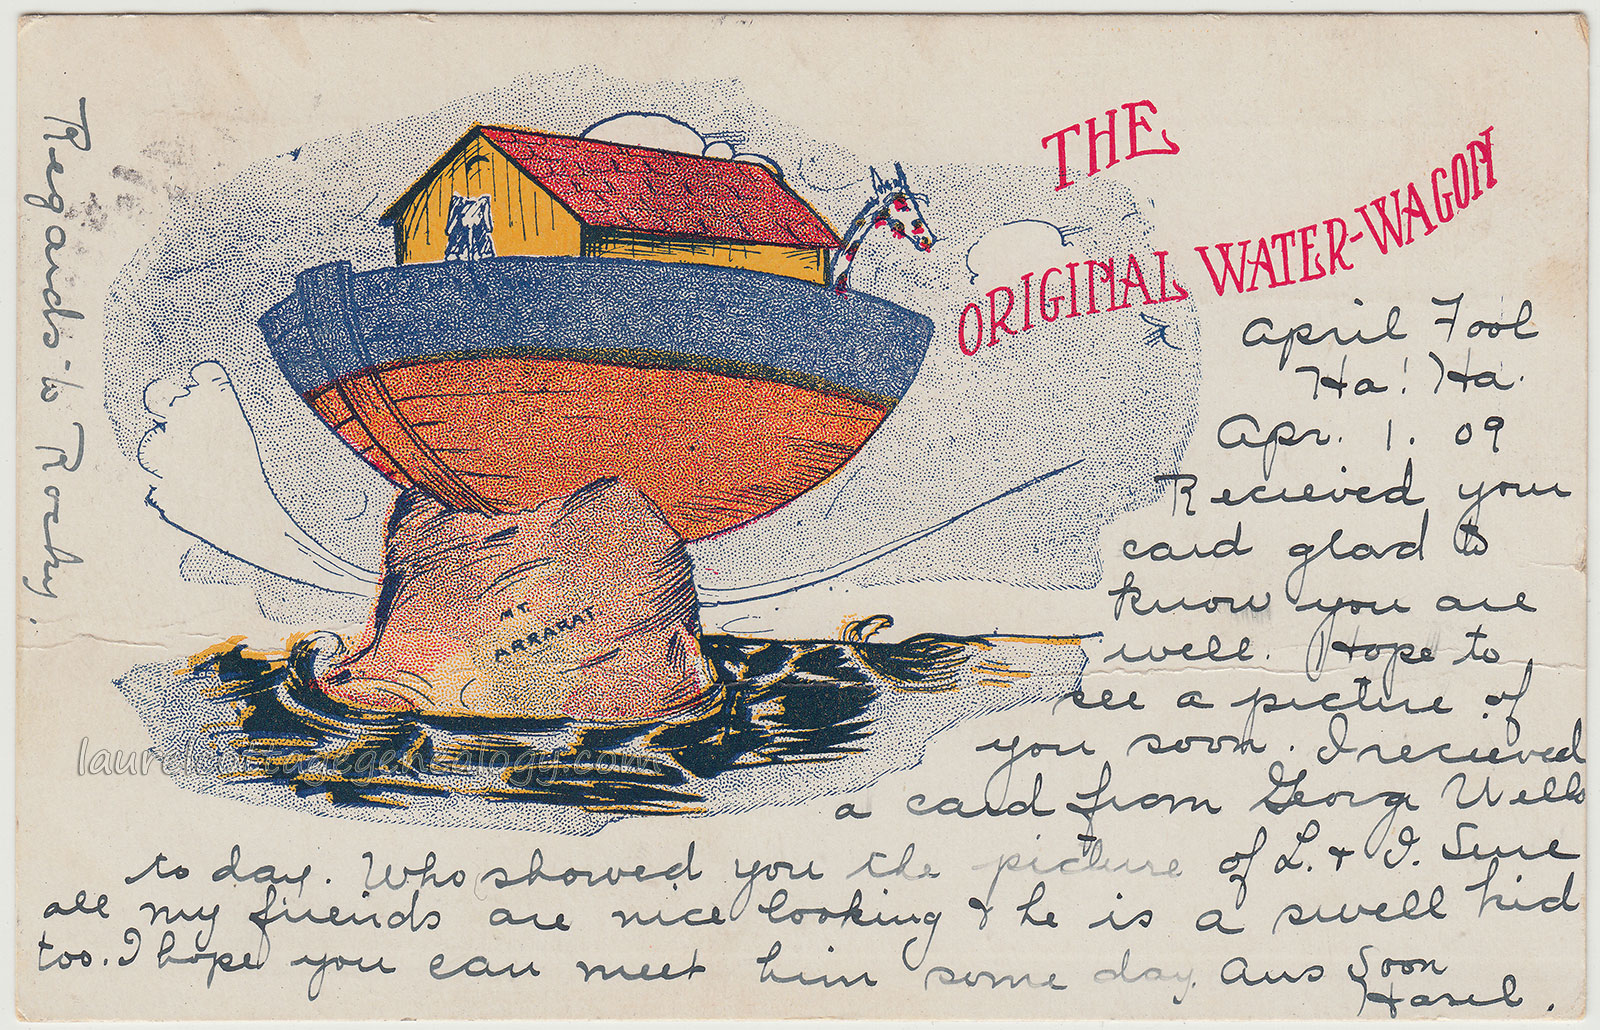 THE
ORIGINAL WATER-WAGON
April Fool
Ha! Ha.
Apr. 1. 09
Recieved your
card glad to
know you are
well. Hope to
see a picture of
you soon. I recieved
a card from George Wells
to day. Who showed you the picture of L. & I. Sure
all my friends are nice looking & he is a swell kid
too. I hope you can meet him some day. Ans Soon
Hazel.
Regards to Rocky.
MT.
ARRARAT
laurelcottagegenealogy.com